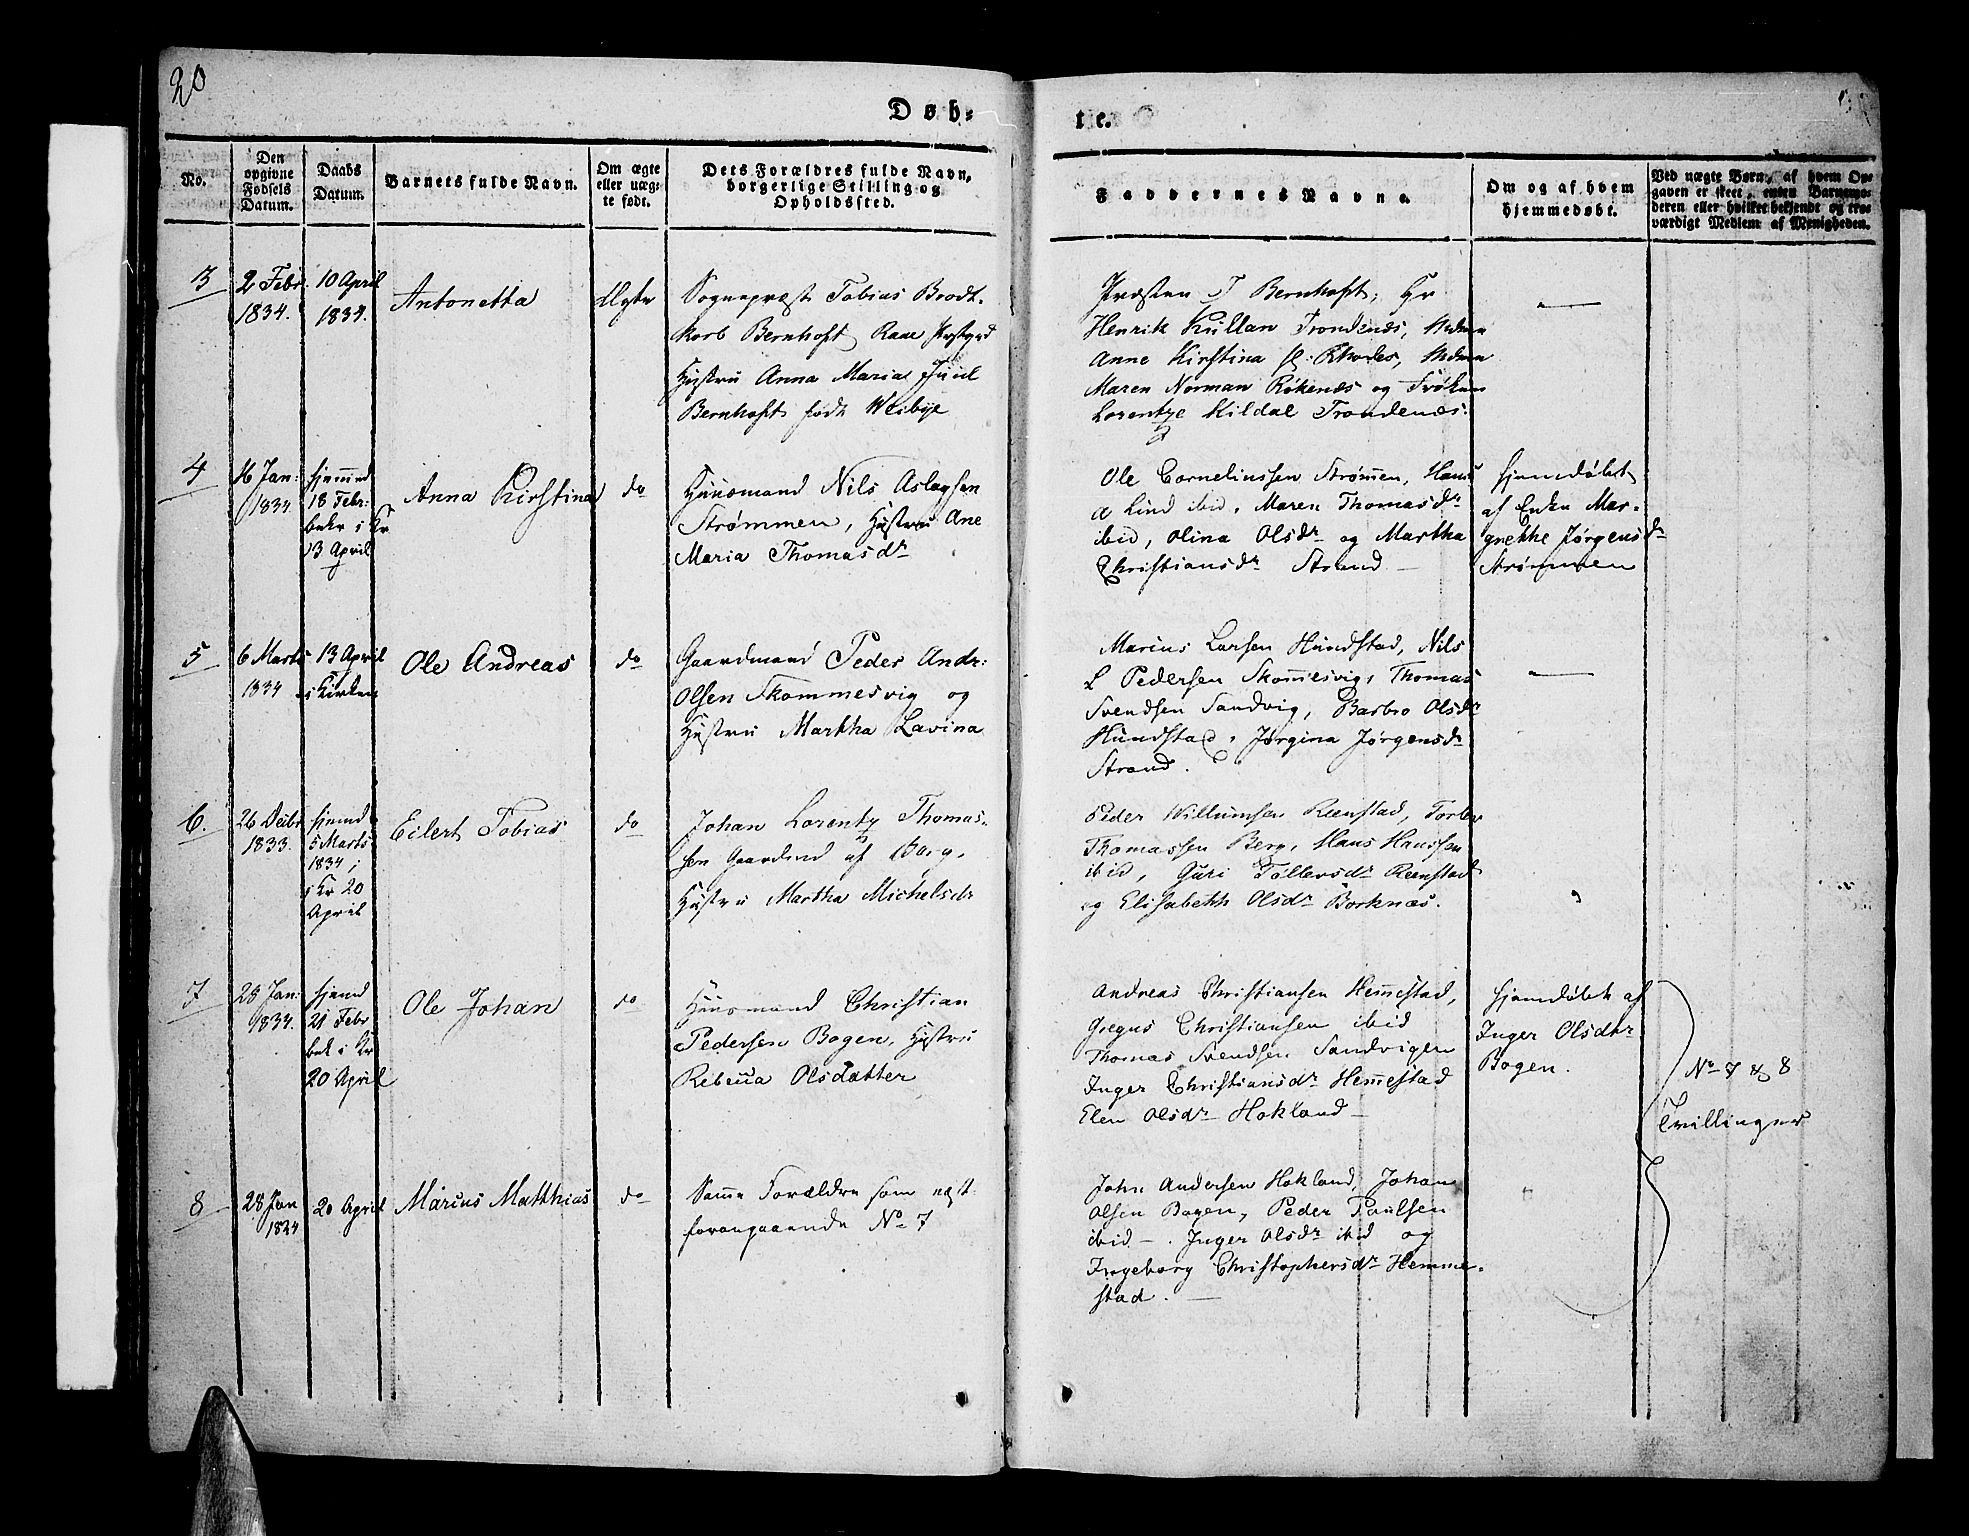 20
Døb-
te.
No.
Den
opgivne
Fødsels
Datum.
Daabs
Datum.
Barnets fulde Navn.
Om ægte
eller uæg-
te født.
Dets Forældres fulde Navn,
borgerlige Stilling og
Opholdssted.
Faddernes Navne.
Om og af hvem
hjemmedøbt.
Ved uægte Børn, af hvem Op-
gaven er skeet, enten Barnemo-
deren eller hvilket bekjendt og tro-
værdigt Medlem af Menigheden.
3
2 Febr.
1834.
10 April
1834.
Antonetta
Ægte
Sognepræst Tobias Brodt-
korb Bernhoft
Hustru Anna Maria Juul
Bernhoft født Weibye
Præsten T Bernhoft, Hr
Henrik Kullan Trondenæs, Madm
Anne Kirstina Sl: Rhodes, Madm
Maren Norman Røkenæs og Frøken
Lorentze Kildal Trondenæs.
4
16 Jan:
1834.
hjemmd
18 Febr:
bekr i Kr
13 April
Anna Kirstina
do
Huusmand Nils Aslagsen
Strømmen, Hustru Ane
Maria Thomasdr
Ole Corneliussen Strømen, Hans
A Lind ibid, Maren Thomasdr
ibid, Olina Olsdr og Martha
Christiansdr Strand
hjemdøbt
af Enke Mar-
grethe Jørgensdr
Strømmen
5
6 Marts
1834
13 April
i Kirken
Ole Andreas
do
Gaardmand Peder Andr:
Olsen Skommesvig og
Hustru Martha Lavina
Marius Larsen Hundstad, Nils
L Pedersen Skomesvig, Thomas
Svendsen Sandvig, Barbro Olsdr
Hundstad, Jørgina Jørgensdr
Strand.
6.
26 Decbr
1833.
hjemd
5 Marts
1834,
i Kr 20
April
Eilert Tobias
do
Johan Lorentz Thomas-
sen Gaardmd af Berg,
Hustru Martha Michelsdr
Peder Willumsen Reenstad, Torber
Thomassen Berg, Hans Hanssen
ibid, Guri Tollersdr Reenstad
og Elisabeth Olsdr Borknæs.
7
28 Jan:
1834.
hjemd
21 Febr
bek i Kr
20 April
Ole Johan
do
Huusmand Christian
Pedersen Bogen, Hustru
Rebecca Olsdatter
Andreas Christiansen Hemestad,
Gregus Christiansen ibid
Thomas Svendsen Sandvigen
Inger Christiansdr Hemestad
Elen Olsdr Hokland
hjemdøbt af
Inger Olsdtr
Bogen.
No 7 & 8
Tvillinger
8
28 Jan
1824
20 April
Marius Matthias
do
Samme Forældre som næst
foregaaende No 7
John Andersen Hokland, Johan
Olsen Bogen, Peder Paulsen
ibid. Inger Olsdr ibid og
Ingeborg Christophersdr Hemme-
stad.